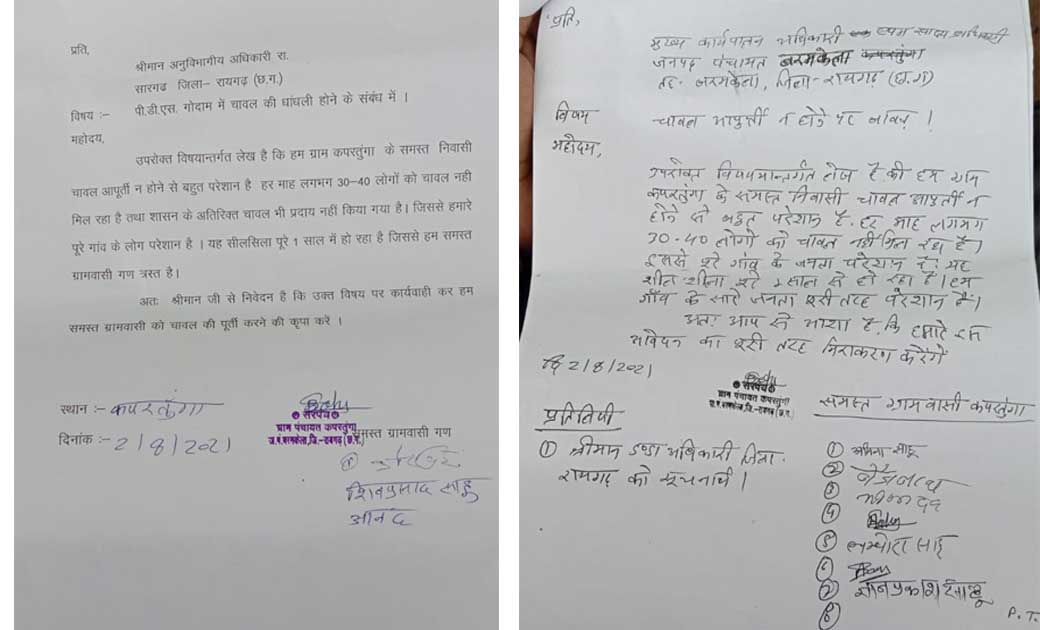 प्रति,
श्रीमान अनुविभागीय अधिकारी रा.
सारगढ जिला– रायगढ़ (छ.ग.)
विषय :– पी.डी.एस. गोदाम में चावल की धांधली होने के संबंध में ।
महोदय,
उपरोक्त विषयान्तर्गत लेख है कि हम ग्राम कपरतुंगा के समस्त निवासी
चावल आपूर्ती न होने से बहुत परेशान है हर माह लगभग 30–40 लोगों को चावल नही
मिल रहा है तथा शासन के अतिरिक्त चावल भी प्रदाय नहीं किया गया है। जिससे हमारे
पूरे गांव के लोग परेशान है । यह सीलसिला पूरे 1 साल में हो रहा है जिससे हम समस्त
ग्रामवासी गण त्रस्त है।
अतः श्रीमान जी से निवेदन है कि उक्त विषय पर कार्यवाही कर हम
समस्त ग्रामवासी को चावल की पूर्ती करने की कृपा करें ।
स्थान :– कपरतुंगा
दिनांक :– 2/8/2021
सरपंच
ग्राम पंचायत कपरतुंगा
समस्त ग्रामवासी गण
शिवप्रसाद साहू
आनंद
प्रति,
मुख्य कार्यपालन अधिकारी
जनपद पंचायत बरमकेला
तह- बरमकेला, जिला- रायगढ़ (छ.ग)
विषय चावल आपुर्ती न होने पर बाबत् ।
महोदय,
उपरोक्त विषयान्तर्गत लेख है की हम ग्राम
कपरतुंगा के समस्त निवासी चावल आपुर्ती न
होने से बहुत परेशान है. हर माह लगभग
30-40 लोगो को चावल नही मिल रहा है।
इससे पुरे गांव के जनता परेशान है. यह
पुरे साल से हो रहा है। हम
गाँव के सारे जनता इसी तरह परेशान है।
अतः आप से आशा है. कि हमारे इस
आवेदन का इसी तरह निराकरण करेंगे
दि 2/8/2021
सरपंच
ग्राम पंचायत कपरतुंगा
समस्त ग्रामवासी कपरतुंगा
प्रतिलिपी
① श्रीमान अधिकारी जिला-
रायगढ़ को सूचनार्थ ।
①
② बैजनाथ
③
④
⑤ साहू
⑥
⑦
⑧
P.T.